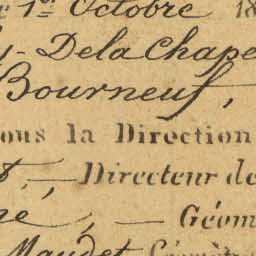 1er Octobre 18
Dela Chape
Bourneuf,
ous la Direction
— Directeur de
né, — Géom
Maudet Géomètre